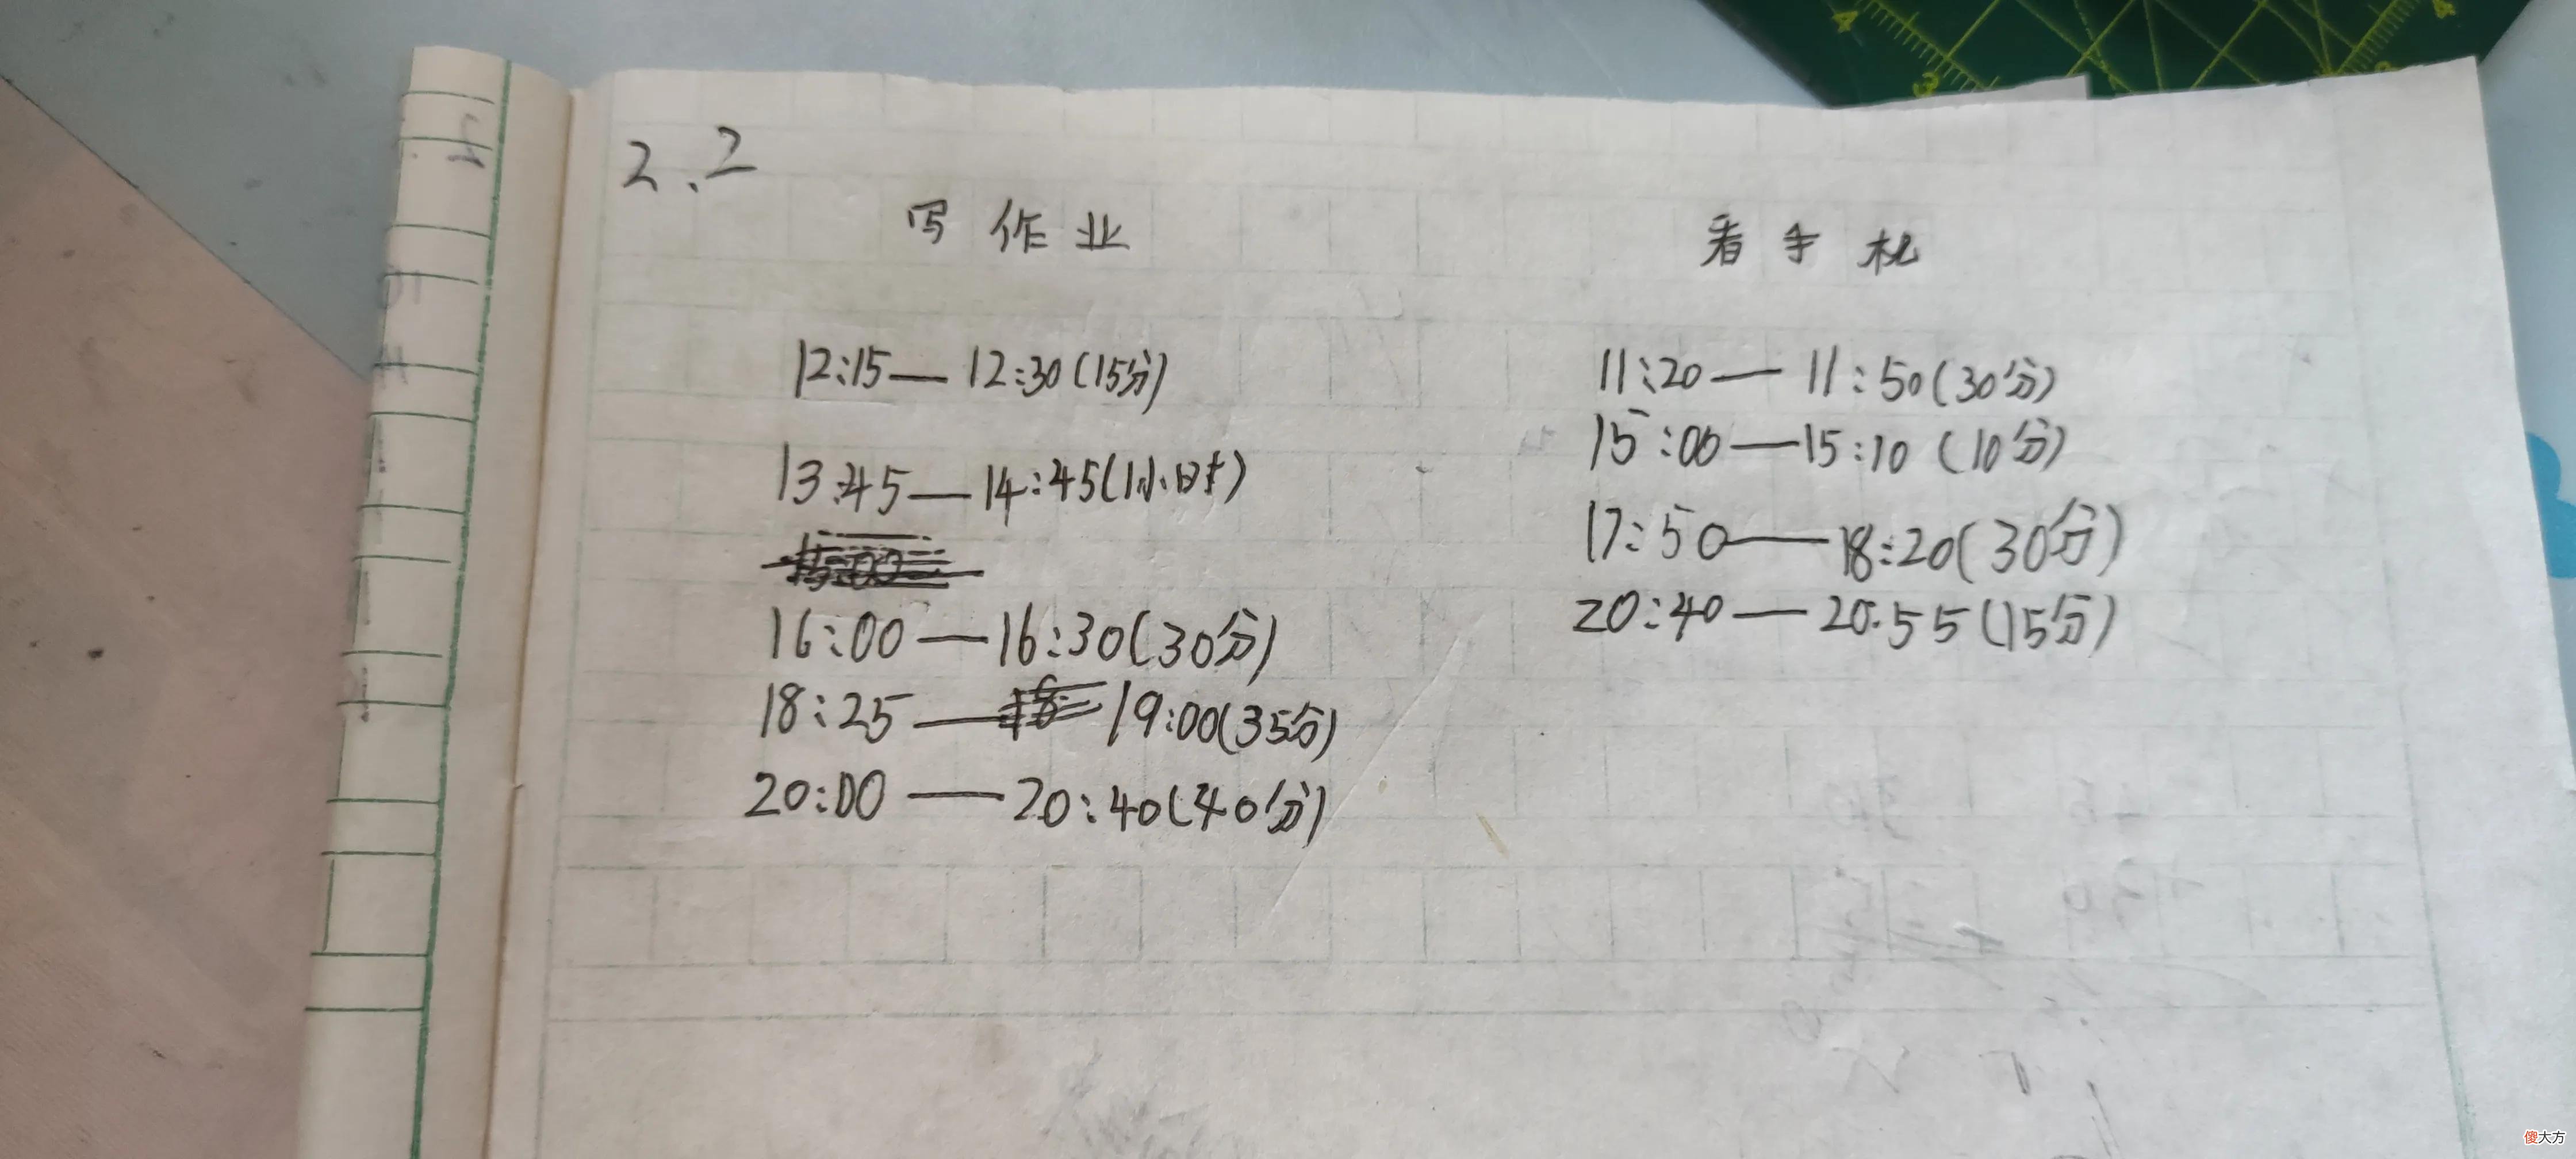 2.2
写作业
12:15—12:30(15分)
13:45—14:45(1小时)
16:00—16:30(30分)
18:25—19:00(35分)
20:00—20:40(40分)
看手机
11:20—11:50(30分)
15:00—15:10(10分)
17:50—18:20(30分)
20:40—20:55(15分)
4
3
傻大方